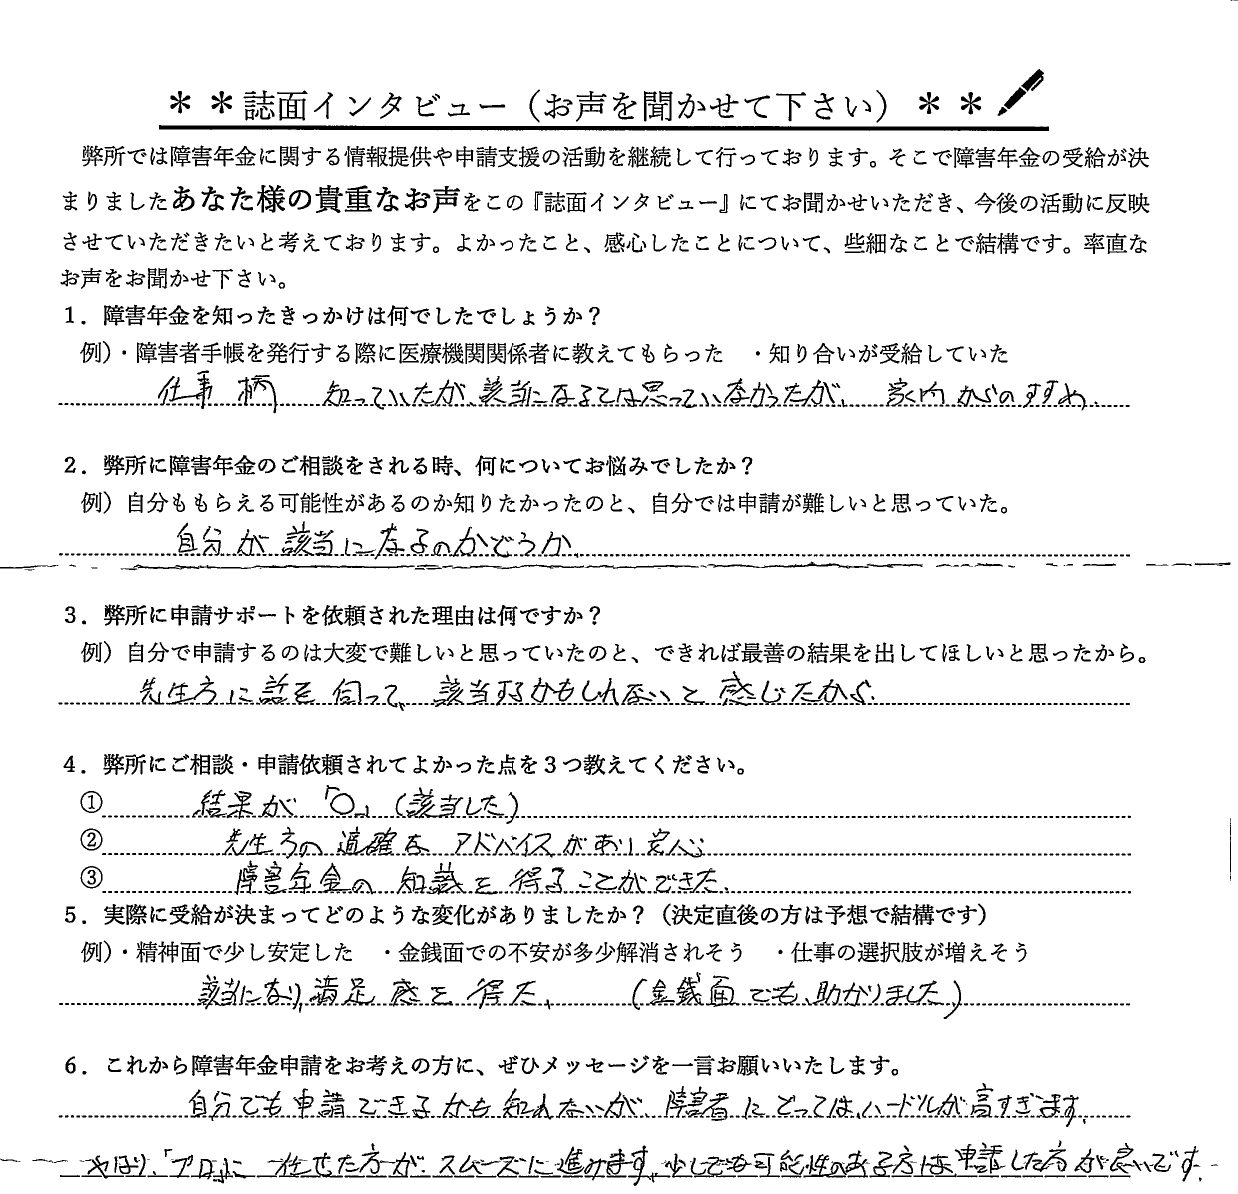 ＊ ＊誌面インタビュー（お声を聞かせて下さい）＊ ＊
弊所では障害年金に関する情報提供や申請支援の活動を継続して行っております。そこで障害年金の受給が決
まりましたあなた様の貴重なお声をこの『誌面インタビュー』にてお聞かせいただき、今後の活動に反映
させていただきたいと考えております。よかったこと、感心したことについて、些細なことで結構です。率直な
お声をお聞かせ下さい。
１．障害年金を知ったきっかけは何でしたでしょうか？
例）・障害者手帳を発行する際に医療機関関係者に教えてもらった　・知り合いが受給していた
仕事柄　知っていたが、該当になるとは思っていなかったが、　家内からのすすめ、
２．弊所に障害年金のご相談をされる時、何についてお悩みでしたか？
例）自分ももらえる可能性があるのか知りたかったのと、自分では申請が難しいと思っていた。
自分が該当になるのかどうか、
３．弊所に申請サポートを依頼された理由は何ですか？
例）自分で申請するのは大変で難しいと思っていたのと、できれば最善の結果を出してほしいと思ったから。
先生方に話を伺って、該当するかもしれないと感じたから、
４．弊所にご相談・申請依頼されてよかった点を３つ教えてください。
①結果が「〇」（該当した）
②先生方の適確なアドバイスがあり安心
③障害年金の知識を得ることができた、
５．実際に受給が決まってどのような変化がありましたか？（決定直後の方は予想で結構です）
例）・精神面で少し安定した　・金銭面での不安が多少解消されそう　・仕事の選択肢が増えそう
該当になり、満足感を得た、　（金銭面でも、助かりました）
６．これから障害年金申請をお考えの方に、ぜひメッセージを一言お願いいたします。
自分でも申請できるかも知れないが、障害者にとっては、ハードルが高すぎます、
やはり、「プロ」に任せた方が、スムーズに進みます。少しでも可能性のある方は、申請した方が良いです、